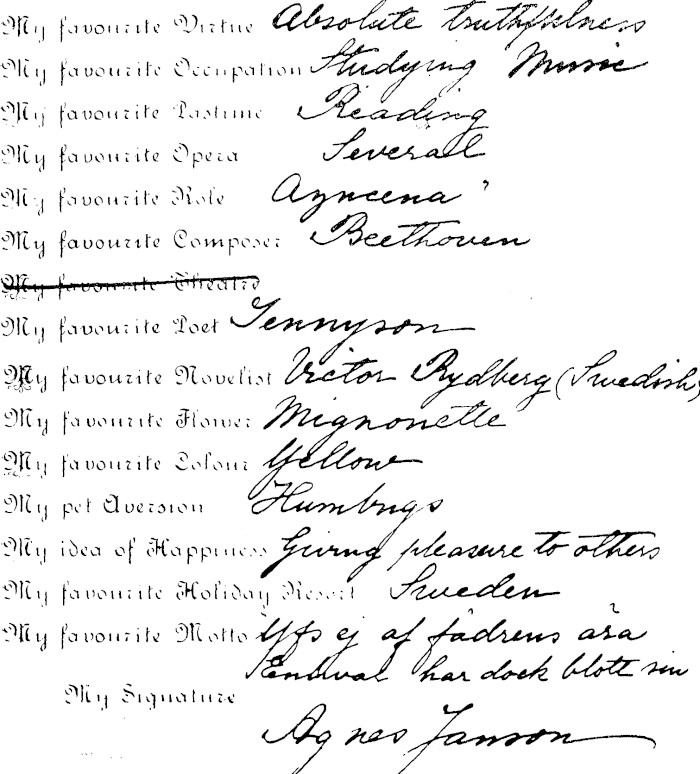 My favourite Virtue Absolute truthfulness
My favourite Occupation Studying Music
My favourite Pastime Reading
My favourite Opera Several
My favourite Role Azucena
My favourite Composer Beethoven
My favourite Theatre
My favourite Poet Tennyson
My favourite Novelist Victor Rydberg (Swedish)
My favourite Flower Mignonette
My favourite Colour Yellow
My pet Aversion Humbugs
My idea of Happiness Giving pleasure to others
My favourite Holiday Resort Sweden
My favourite Motto Yfs ej af fädrens ära
Enhvar har dock blott sin
My Signature
Agnes Janson